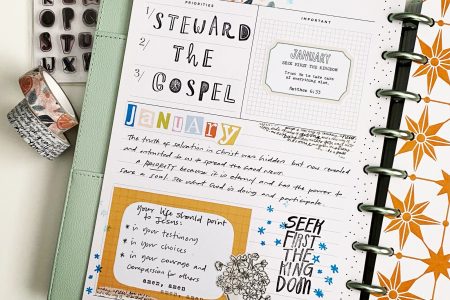 PRIORITIES
1/ STEWARD
2/ THE
3/ GOSPEL
IMPORTANT
JANUARY
SEEK FIRST THE KINGDOM
Trust Him to take care
of everything else.
Matthew 6:33
JANUARY
The truth of salvation in Christ was hidden but now revealed
and intended to us to spread the Good news.
A because it is eternal and has the power to
save a soul. See what God is doing and participate.
your life should point
to Jesus:
* in your testimony
* in your choices
* in your courage and
compassion for others
amen, amen
SEEK
FIRST
THE
KING
DOM
R S T
U X